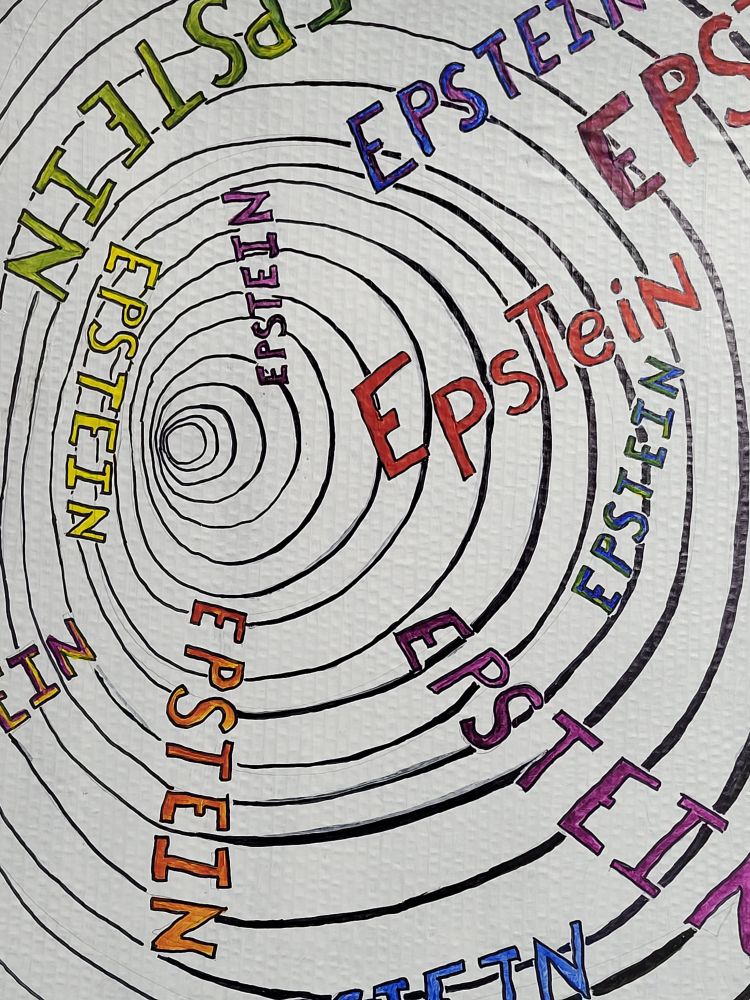 EPSTEIN
EPSTEIN
EPS
EPSTEIN
EPSTEIN
EPSTEIN
EPSTEIN
EIN
EPSTEIN
EPSTEIN
STEIN